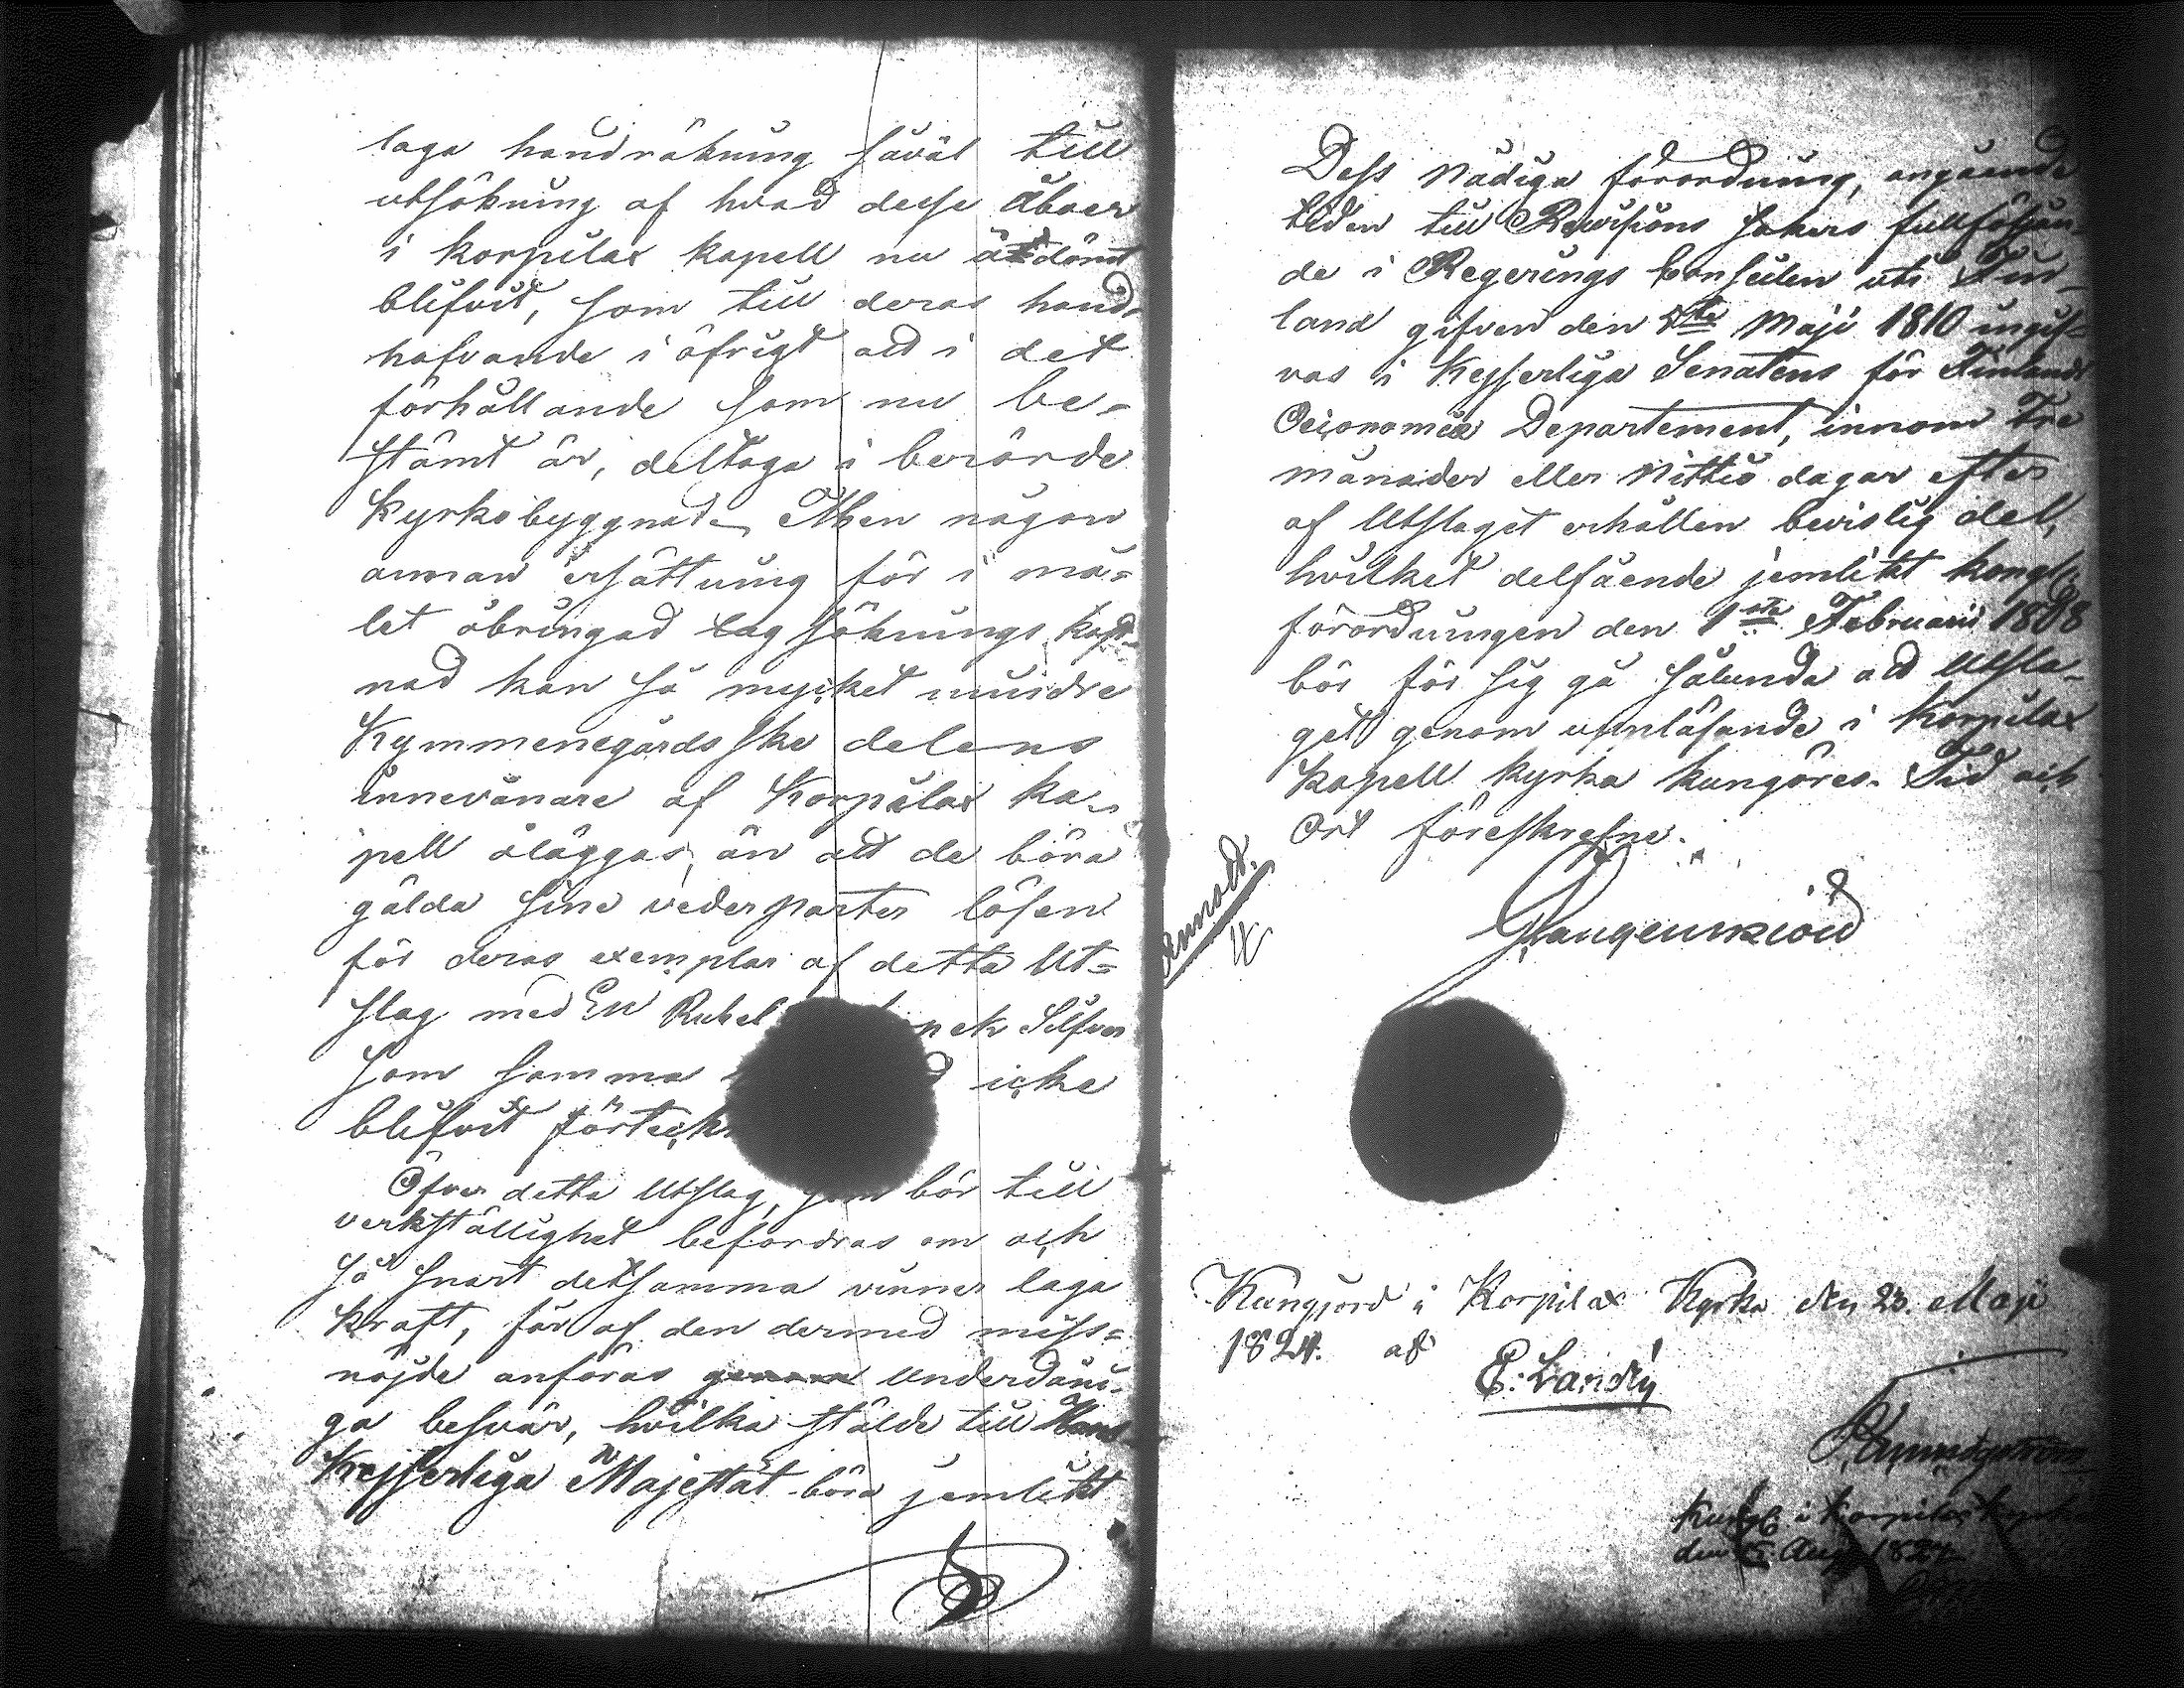 laga handräkning såväl till
utsökning af hvad desse Åboer
i Korpilax kapell nu ådömt
blifvit, som till deras hand-
hafvande i öfrigt att i det
förhållande som nu be-
stämt är, deltaga i berörde
Kyrkobyggnad. Men någon
annan ersättning för i må-
let åbringad lagsöknings kost-
nad kan så mycket mindre
Kymmenegårdsske delens
innevånare af Korpilax ka-
pell åläggas, än att de böra
gälda sine vederparter lösen
för deras exemplar af detta Ut-
slag med En Rubel Silfver
som samma icke
blifvit
Öfver detta Utslag, som bör till
verkställighet befordras om och
så snart detsamma vinner laga
kraft, får af den dermed miss-
nöjde anföras underdåni-
ga besvär, hvilka stälde till Hans
Kejserliga Majestät böra jemlikt
Dess Nådiga förordning, angående
tiden till Revisions sakers fullföljan-
de i Regerings Conseilen uti Fin-
land gifven den Maji 1810 ingif-
vas i Kejserliga Senatens för Finland
Oeconomie Departement, innom Tre
månader eller Nittio dagar efter
af Utslaget erhållen bevislig del,
hvilket delfående jemlikt kongl.
förordningen den 1sta Februarii 1808
bör för sig gå sålunda att Utsla-
get genom upläsande i Korpilax
Kapell kyrka kungöres. Tid och
Ort föreskrefne.
Langenskiöld
Kungjord i Korpilax Kyrka den 23. Maji
1824. af
Kungl. i Korpilax Kyrka
den Aug. 1824